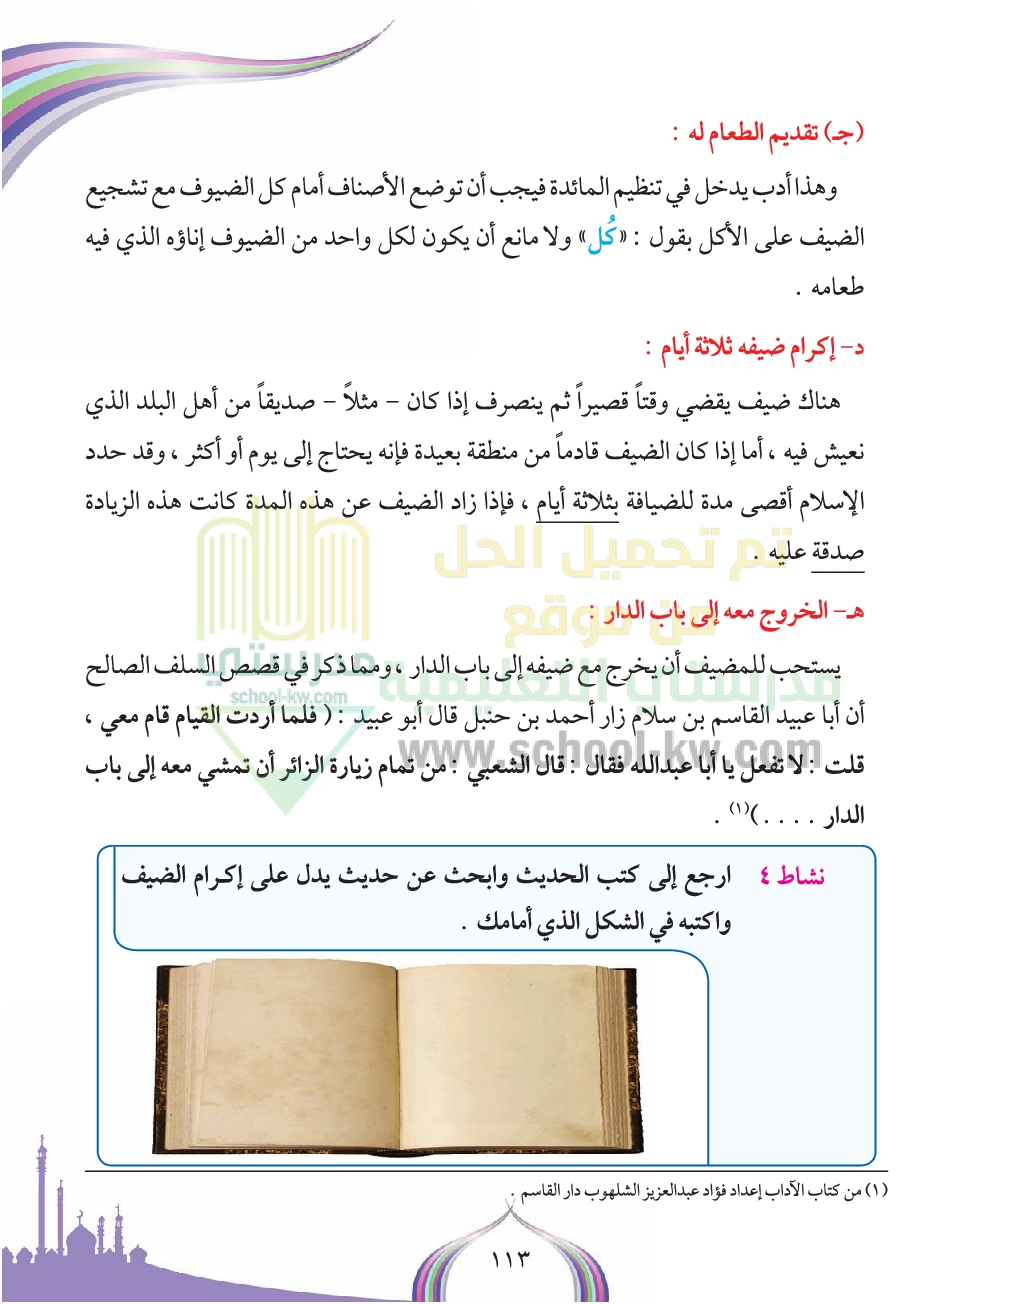 (جـ) تقديم الطعام له :
وهذا أدب يدخل في تنظيم المائدة فيجب أن توضع الأصناف أمام كل الضيوف مع تشجيع
الضيف على الأكل بقول : «كُل» ولا مانع أن يكون لكل واحد من الضيوف إناؤه الذي فيه
طعامه .
د- إكرام ضيفه ثلاثة أيام :
هناك ضيف يقضي وقتاً قصيراً ثم ينصرف إذا كان - مثلاً - صديقاً من أهل البلد الذي
نعيش فيه ، أما إذا كان الضيف قادماً من منطقة بعيدة فإنه يحتاج إلى يوم أو أكثر ، وقد حدد
الإسلام أقصى مدة للضيافة بثلاثة أيام ، فإذا زاد الضيف عن هذه المدة كانت هذه الزيادة
صدقة عليه .
تم تحميل الحل
هـ- الخروج معه إلى باب الدار :
من موقع
يستحب للمضيف أن يخرج مع ضيفه إلى باب الدار ، ومما ذكر في قصص السلف الصالح
مدرستي
school-kw.com
مدرستي التعليمية
أن أبا عبيد القاسم بن سلام زار أحمد بن حنبل قال أبو عبيد : ( فلما أردت القيام قام معي ،
www.school-kw.com
قلت : لا تفعل يا أبا عبدالله فقال : قال الشعبي : من تمام زيارة الزائر أن تمشي معه إلى باب
الدار . . . . )(١) .
نشاط ٤ ارجع إلى كتب الحديث وابحث عن حديث يدل على إكرام الضيف
واكتبه في الشكل الذي أمامك .
(١) من كتاب الآداب إعداد فؤاد عبدالعزيز الشلهوب دار القاسم .
١١٣